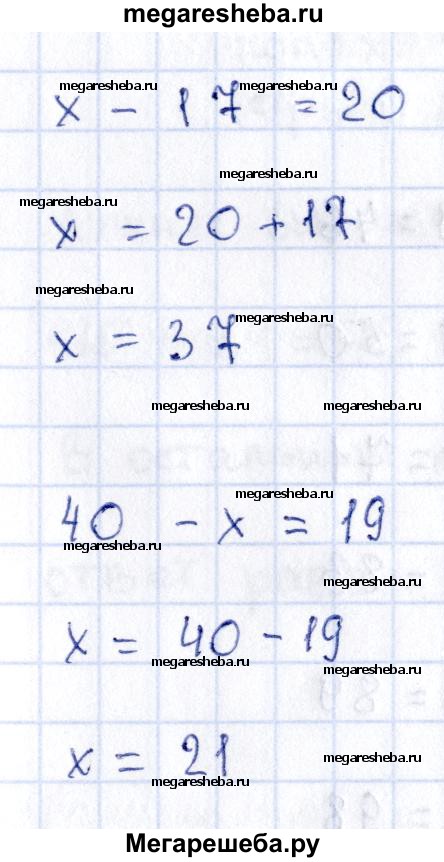 megaresheba.ru
megaresheba.ru megaresheba.ru
x - 17 = 20
megaresheba.ru
megaresheba.ru
x = 20 + 17
megaresheba.ru
megaresheba.ru
x = 37
megaresheba.ru megaresheba.ru
megaresheba.ru
40 - x = 19
megaresheba.ru
megaresheba.ru
x = 40 - 19
megaresheba.ru megaresheba.ru
x = 21
megaresheba.ru
megaresheba.ru
Мегарешеба.ру